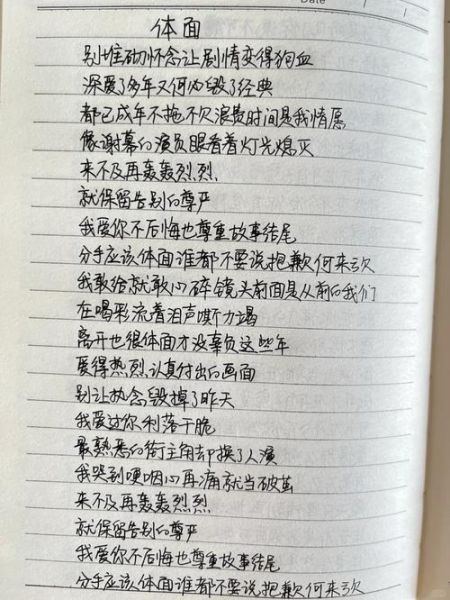 Date
体面
别堆砌怀念让剧情变得狗血
深爱了多年又何必毁了经典
都已成年不拖不欠浪费时间是我情愿
像谢幕的演员眼看着灯光熄灭
来不及再轰轰烈烈
就保留告别的尊严
我爱你不后悔也尊重故事结尾
分手应该体面谁都不要说抱歉何来亏欠
我敢给就敢心碎镜头前面是从前的我们
在喝彩流着泪声嘶力竭
离开也很体面才没辜负这些年
爱得热烈认真付出的画面
别让执念毁掉了昨天
我爱过你利落干脆
最熟悉的街主角却换了人演
我哭到哽咽心再痛就当破茧
来不及再轰轰烈烈
就保留告别的尊严
我爱你不后悔也尊重故事结尾
分手应该体面谁都不要说抱歉何来亏欠